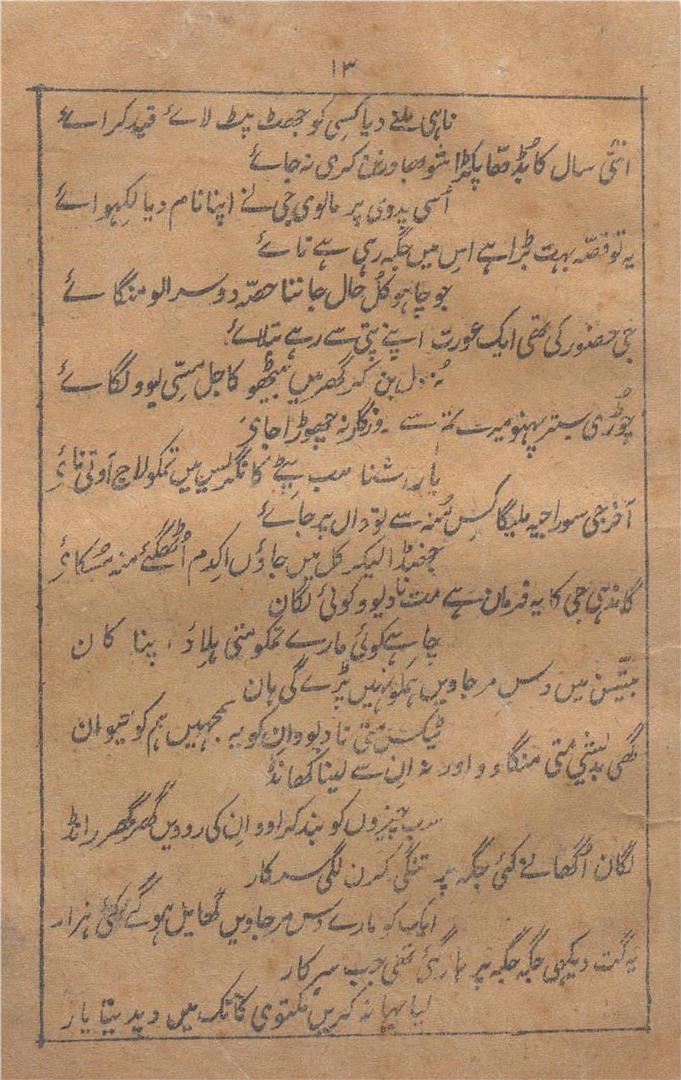 ۱۳
ناہی ہلنے دیا کسی کو جھٹ پٹ لائے قید کرائے
سال کا بڈھا پکڑا کری نہ جائے
اسی پدوی پر مالوی جی نے اپنا نام دیا لکھوائے
یہ تو قصہ بہت بڑا ہے اس میں جگہ رہی ہے نائے
جو چاہو کل حال جاننا حصہ دوسرا لو منگائے
جی حضور کی تھی ایک عورت اپنے پتی سے رہے بتلائے
بن کر گھر میں بیٹھو کاجل مسّی لیوو لگائے
چوڑی بستر پہنو میرے سے روزگار نہ چھوڑا جائے
سب بیٹھے کانگریس میں تمکو لاج آوتی نائے
آخر جی سوراجیہ ملیگا کس منہ سے تو واں پر جائے
جھنڈا لیکر کل میں جاؤں اکدم اٹھگئے منہ مسکائے
گاندھی جی کا یہ فرمان ہے مت نا دیوو کوئی لگان
چاہے کوئی مارے تمکو متی ہلاؤ اپنا کان
میں دس مر جاویں ہمکو نہیں پڑے گی ہان
ٹیکس متی نا دیوو ان کو یہ سمجہیں ہم کو حیوان
گھی بدیشی متی منگاوو اور نہ ان سے لینا کھانڈ
سب چیزوں کو بند کراوو ان کی روویں گھر گھر رانڈ
لگان اگھانے کئی جگہ پر تنگی کرن لگی سرکار
ایک کو مارے دس مر جاویں گھایل ہوگے کئی ہزار
یہ گت دیکھی جگہ جگہ پر ہار گئی تھی جب سرکار
کیا بیا نہ کریں میں یار